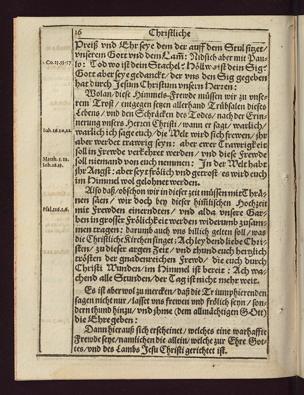 16
Christliche
Preiß und Ehr seye dem der auff dem Stul sitzet/
unserem Gott und dem Lam̃: Rudsich aber mit Pau-
lo: Tod wo ist dein Stachel? Höll wo ist dein Sig?
1. Co. 15. 55. 57.
Gott aber seye gedanckt/ der uns den Sig gegeben
hat durch Jesum Christum unseren Herren:
Wolan/ diese Himmels-Freude müssen wir zu unse-
rem Trost/ entgegen setzen allerhand Trübsalen dieses
Lebens/ und den Schräcken des Todes/ nach der Erin-
nerung unsers Herzen Christi/ wann er sagt/ warlich/
warlich ich sage euch/ die Welt wird sich frewen/ ihr
aber werdet trawrig seyn: aber ewer Trawrigkeit
soll in Freude verkehret werden/ und diese Freude
soll niemand von euch nemmen: In der Welt habt
ihr Angst: aber seyt frölich und getrost/ es wird euch
im Himmel wol gelohnet werden.
Also daß/ obschon wir in dieser zeit müssen mit Thrä-
nen säen/ wir doch bey dieser himlischen Hochzeit
mit Frewden einerndten/ und alda unsere Gar-
Psal. 126. 5. 6.
ben in grosser Frölichkeit werden widerumb zusam-
men tragen: darumb auch uns billich gelten soll/ was
die Christliche Kirchen singet: Ach ley den d liebe Chri-
sten/ zu dieser argen Zeit/ und thund euch herzlich
trösten der gnadenreichen Freud/ die euch durch
Christi Wunden/ im Himmel ist bereit: Ach wa-
chend alle Stunden/ der Tag ist nicht mehr weit.
Es ist aber wol zu mercken/ daß die Triumphierenden
sagen nicht nur/ lasset uns frewen und frölich seyn/ son-
dern thund hinzu/ und ihme (dem allmächtigen GOtt)
die Ehre geben:
Dann hierauß sich erscheinet/ welches eine warhaffte
Freude seye/ namlichen die allein/ welche zur Ehre Got-
tes/ und des Lambs Jesu Christi gerichtet ist.